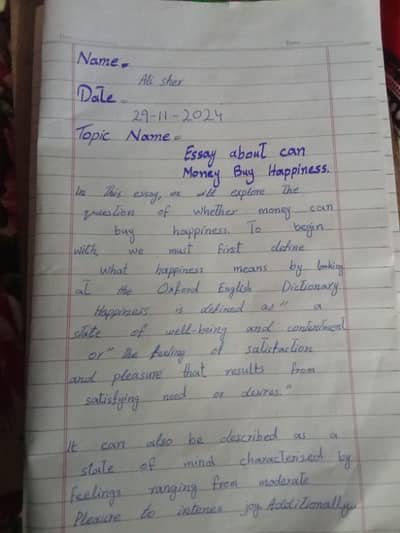 Name.
Ali sher
Date
29-11-2024
Topic Name =
Essay about can
Money Buy Happiness.
In this essay, we will explore the
question of whether money can
buy happiness. To begin
with, we must first define
what happiness means by looking
at the Oxford English Dictionary.
Happiness is defined as "a
state of well-being and contentment
or "the feeling of satisfaction
and pleasure that results from
satisfying need or desires."
It can also be described as a
state of mind characterized by
feelings ranging from moderate
Pleasure to intenes joy. Additionally,